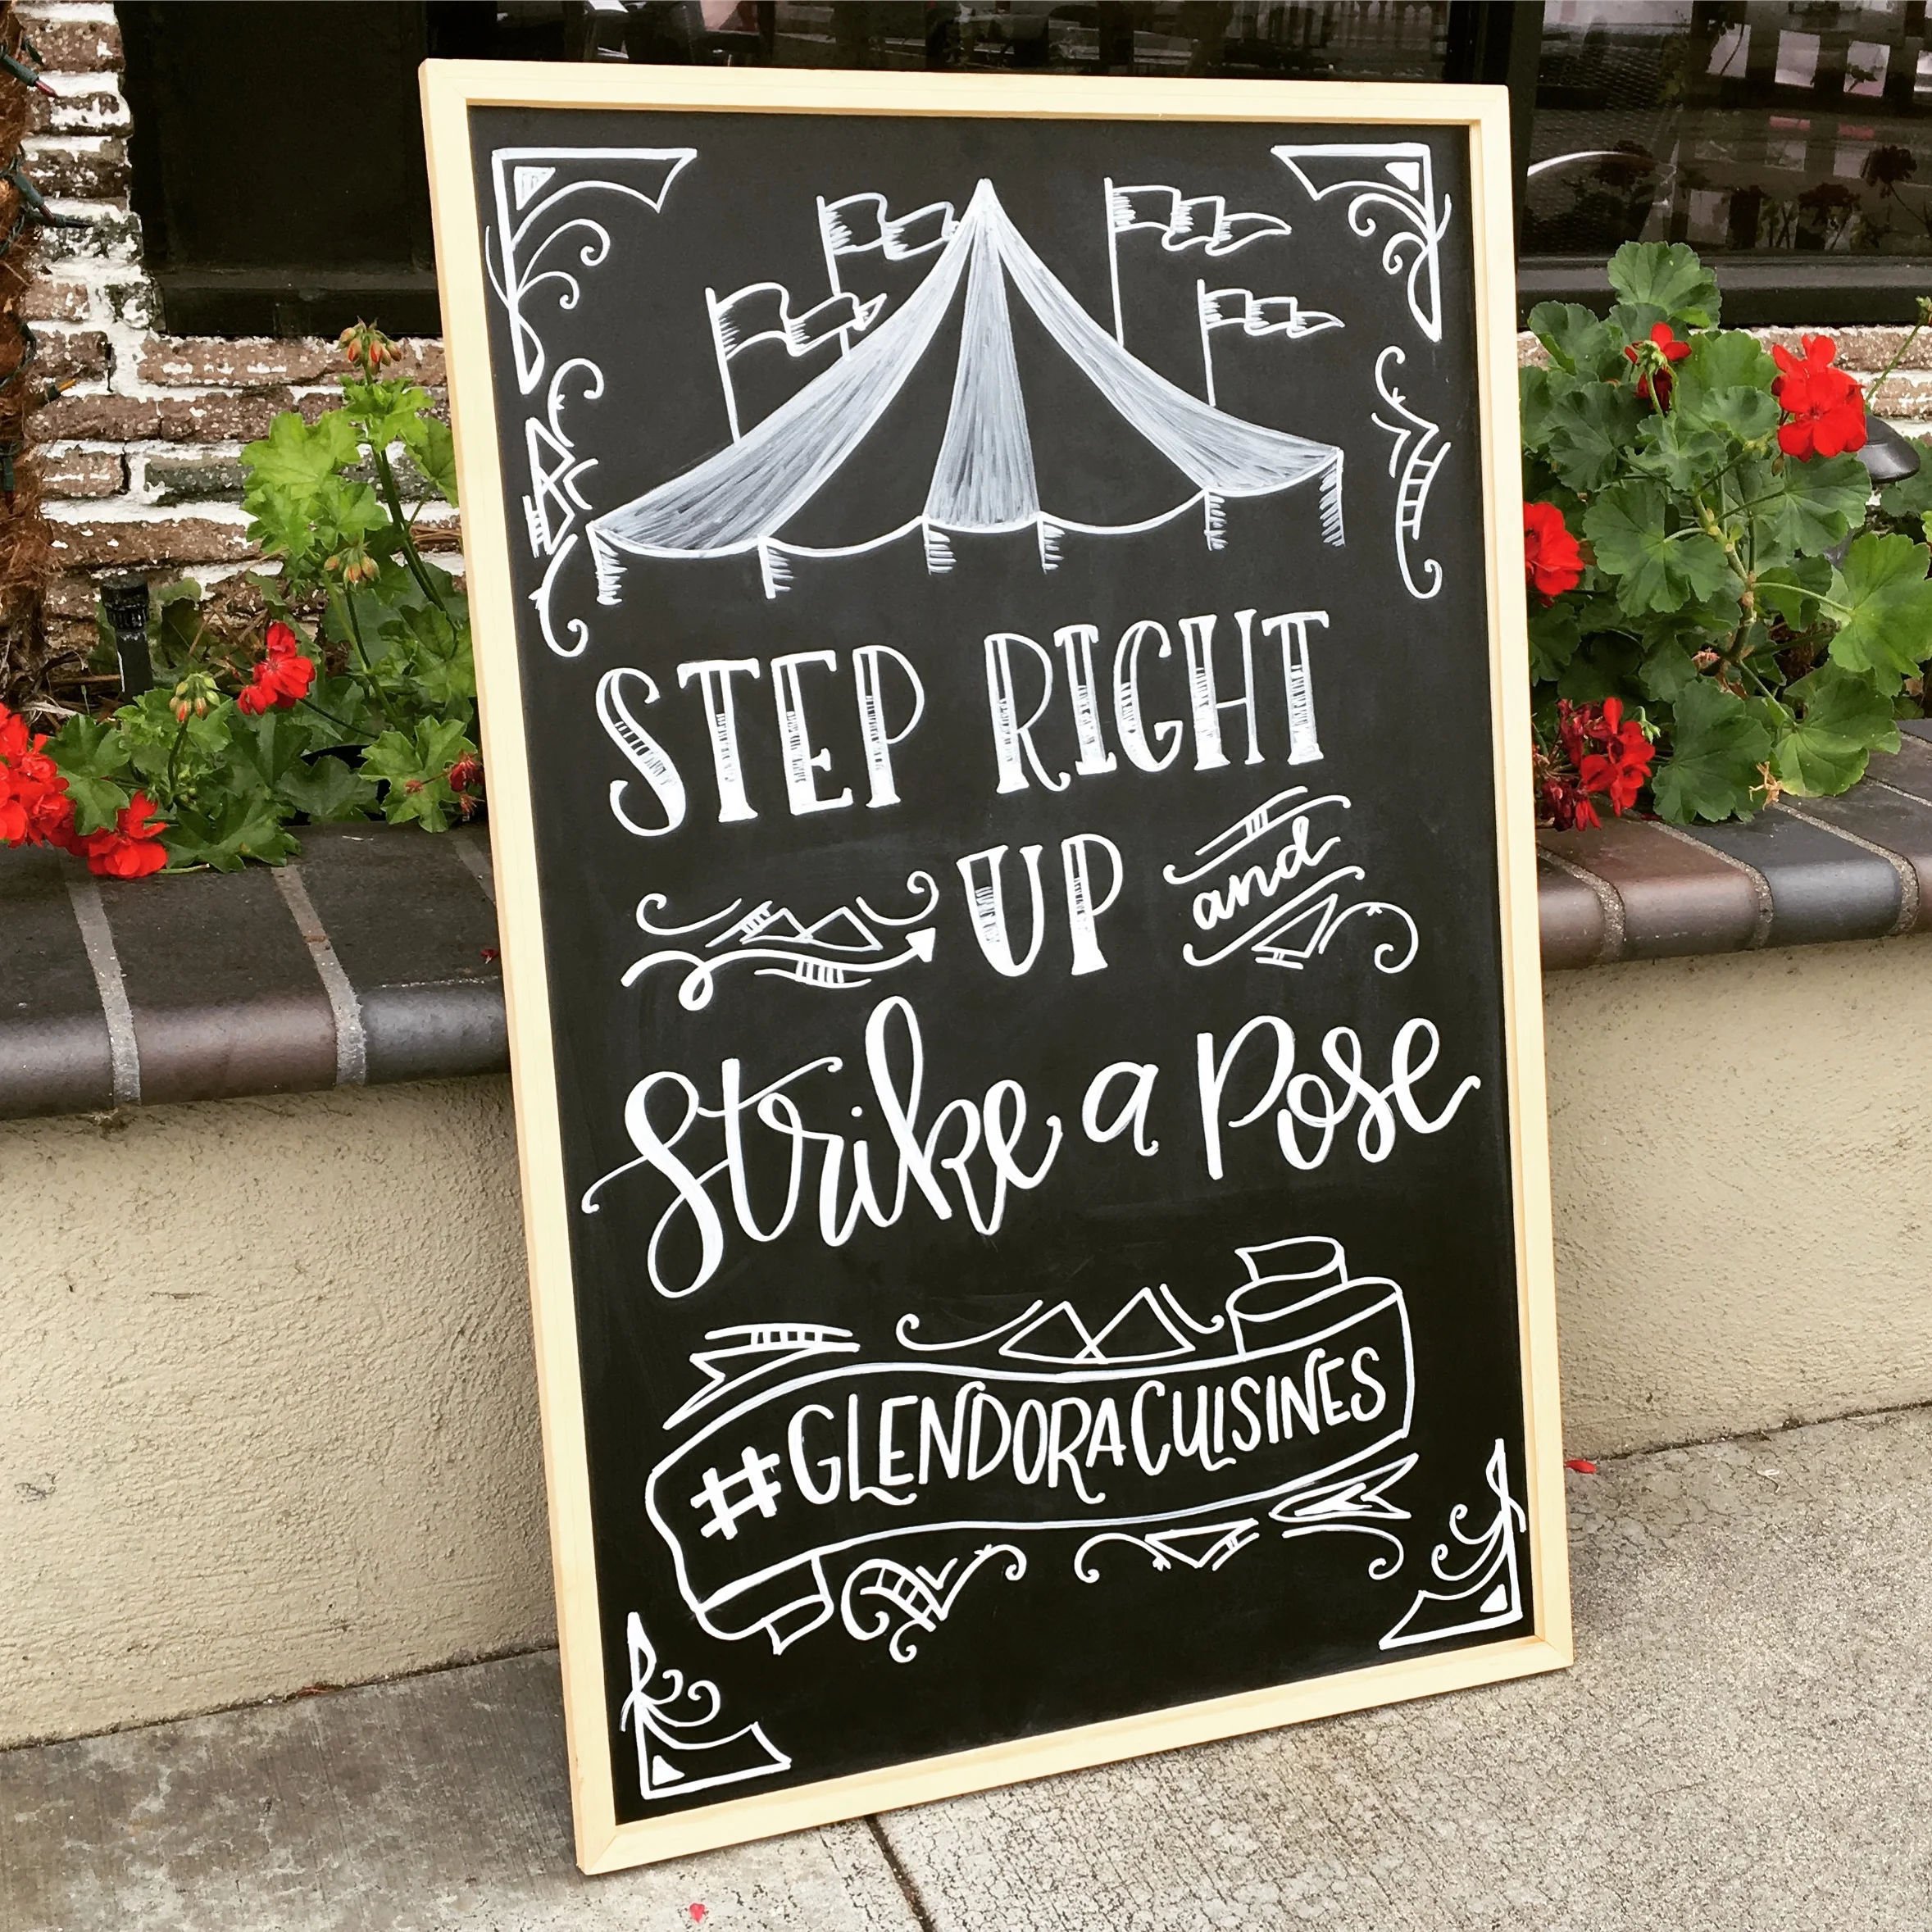 STEP RIGHT
UP and
Strike a Pose
#GLENDORACUISINES